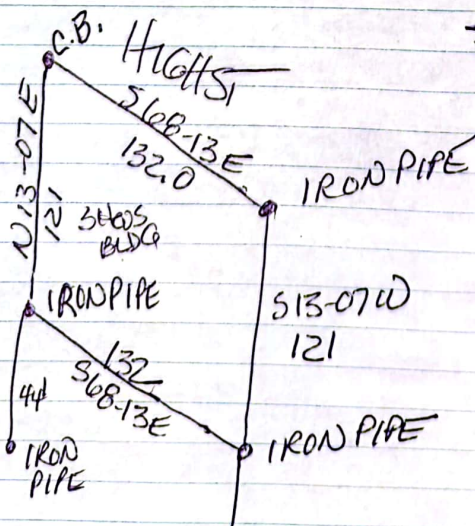 C.B.
HIGH ST
S68-13E
132.0
IRON PIPE
N13-07E
121
BLDG
IRON PIPE
S13-07W
121
132
S68-13E
44
IRON PIPE
IRON
PIPE